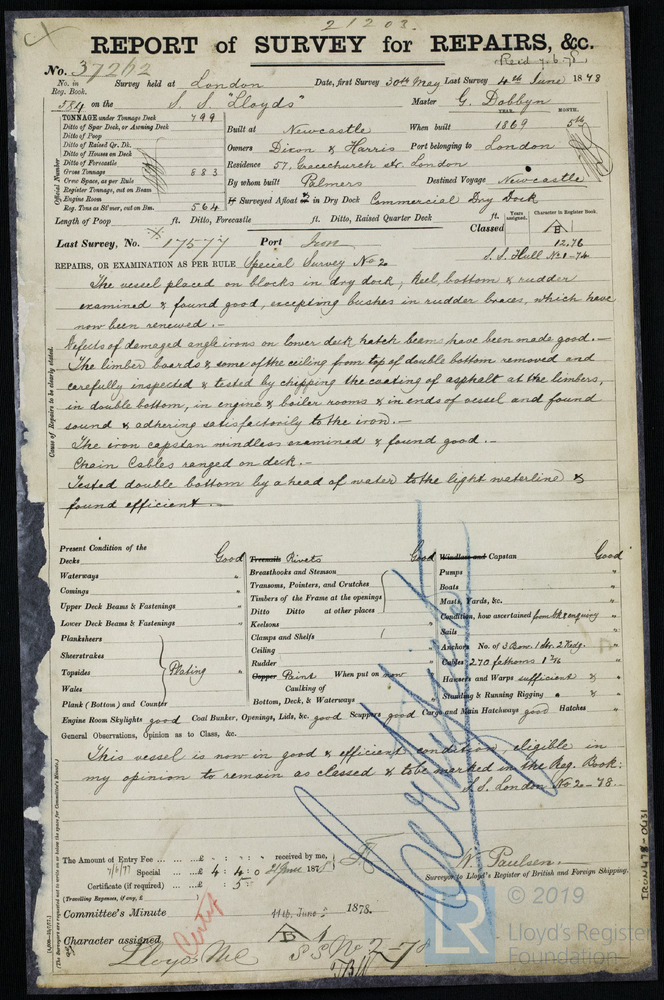 21203.
REPORT of SURVEY for REPAIRS, &c.
No. 37262 Rec'd 7.6.78
No. in Reg. Book. Survey held at London Date, first Survey 30th May Last Survey 4th June 1878
584 on the S. S. "Lloyds" Master G. Dobbyn
TONNAGE under Tonnage Deck 799
Ditto of Spar Deck, or Awning Deck
Ditto of Poop
Ditto of Raised Qr. Dk.
Ditto of Houses on Deck
Ditto of Forecastle
Gross Tonnage 883
Crew Space, as per Rule
Register Tonnage, cut on Beam
Engine Room
Reg. Tons as St'mer, cut on Bm. 564
Official Number
YEAR. MONTH.
Built at Newcastle When built 1869 5th
Owners Dixon & Harris Port belonging to London
Residence 57, Gracechurch str. London
By whom built Palmers Destined Voyage Newcastle
If Surveyed Afloat or in Dry Dock Commercial Dry Dock
Length of Poop ft. Ditto, Forecastle ft. Ditto, Raised Quarter Deck ft.
Years assigned. Character in Register Book.
Classed A
12,76
S. S. Hull No 1-74
Last Survey, No. 17577 Port Iron
REPAIRS, OR EXAMINATION AS PER RULE Special Survey No 2
The vessel placed on blocks in dry dock, keel, bottom & rudder
examined & found good, excepting bushes in rudder braces, which have
now been renewed.-
Defects of damaged angle irons on lower deck hatch beams have been made good.-
The limber boards & some of the ceiling from top of double bottom removed and
carefully inspected & tested by chipping the coating of asphalt at the limbers,
in double bottom, in engine & boiler rooms & in ends of vessel and found
sound & adhering satisfactorily to the iron.-
The iron capstan windlass examined & found good.-
Chain Cables ranged on deck.-
Tested double bottom by a head of water to the light waterline &
found efficient.
Cause of Repairs to be clearly stated.
Present Condition of the
Decks Good
Waterways "
Comings "
Upper Deck Beams & Fastenings "
Lower Deck Beams & Fastenings "
Planksheers
Sheerstrakes
Topsides Plating "
Wales
Plank (Bottom) and Counter
Treenails Rivets Good
Breasthooks and Stemson
Transoms, Pointers, and Crutches
Timbers of the Frame at the openings
Ditto Ditto at other places
Keelsons
Clamps and Shelfs
Ceiling
Rudder
Copper Paint When put on now
Caulking of
Bottom, Deck, & Waterways
Windlass and Capstan Good
Pumps "
Boats "
Masts, Yards, &c. "
Condition, how ascertained from Mr & enquiry
Sails "
Anchors No. of 3 Bow. 1 Str. 2 Kedg. "
Cables 270 fathoms 1 7/16 "
Hawsers and Warps sufficient & "
Standing & Running Rigging " & "
Engine Room Skylights good Coal Bunker, Openings, Lids, &c. good Scuppers good Cargo and Main Hatchways good Hatches "
General Observations, Opinion as to Class, &c.
This vessel is now in good & efficient condition, eligible in
my opinion to remain as classed & to be marked in the Reg. Book:
S. S. London No 2-78.
The Amount of Entry Fee ... ...£ : : received by me,
7/6/77 Special ... ...£ 4 : 4 : 0 June 187
Certificate (if required) ... ...£ : 5 :
(Travelling Expenses, if any, £ )
N. Paulsen.
Surveyor to Lloyd's Register of British and Foreign Shipping.
Committee's Minute 11th June 1878.
Character assigned A 1
Lloyds MC S S No 2-78
IRON478-0431
LR
© 2019
Lloyd's Register
Foundation